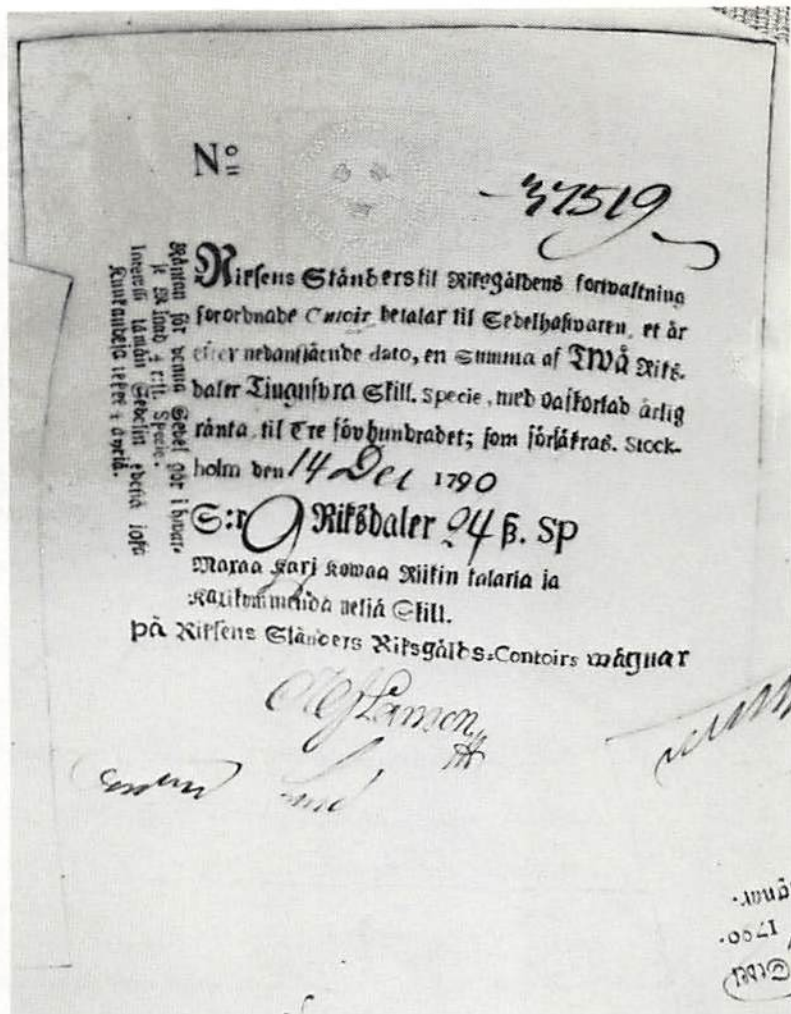 No
37519
Riksens Ständers til Riksgäldens förvaltning
förordnade Contoir betalar til Sedelhafwaren, et år
efter nedanstående dato, en Summa af TWÅ Riks-
daler Tiugufyra Skill. Specie, med oafkortad årlig
ränta til Tre för hundradet; som försäkras. Stock-
holm den 14 Dec 1790
S:r 2 Riksdaler 24 ß. Sp
Maxaa Kaxi Kowaa Riikin talaria ja
Kaxikymmendä neljä Skill.
på Riksens Ständers Riksgälds-Contoirs wägnar
Räntan för denna Sedel gör i hwar-
je Månad r:st. Specie.
Sedelin edestä joka
Kuukaudeja
1790.